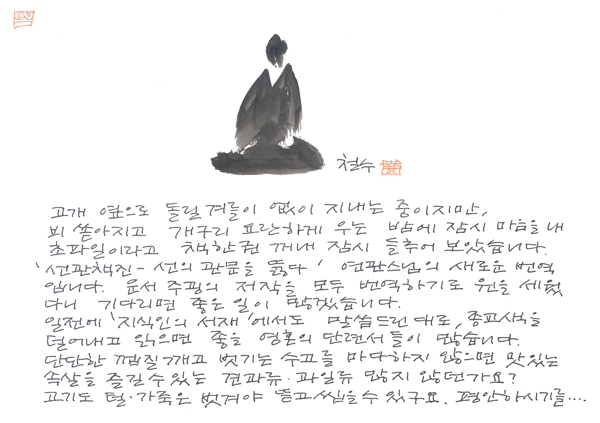 철수
고개 옆으로 돌릴 겨를이 없이 지내는 중이지만,
비 쏟아지고 개구리 요란하게 우는 밤에 잠시 마음을 내
초파일이라고 책한권 꺼내 잠시 들추어 보았습니다.
'선관책진-선의 관문을 뚫다' 연관스님의 새로운 번역
입니다. 운서 주굉의 저작을 모두 번역하기로 원을 세웠
다니 기다리면 좋은 일이 많겠습니다.
일전에 '지식인의 서재'에서도 말씀드린대로, 종교색을
덜어내고 읽으면 좋을 영혼의 단련서들이 많습니다.
단단한 껍질 깨고 벗기는 수고를 마다하지 않으면 맛있는
속살을 즐길 수 있는 견과류·과일류 많지 않던가요?
고기도 털·가죽은 벗겨야 뜯고 씹을 수 있구요. 평안하시기를....